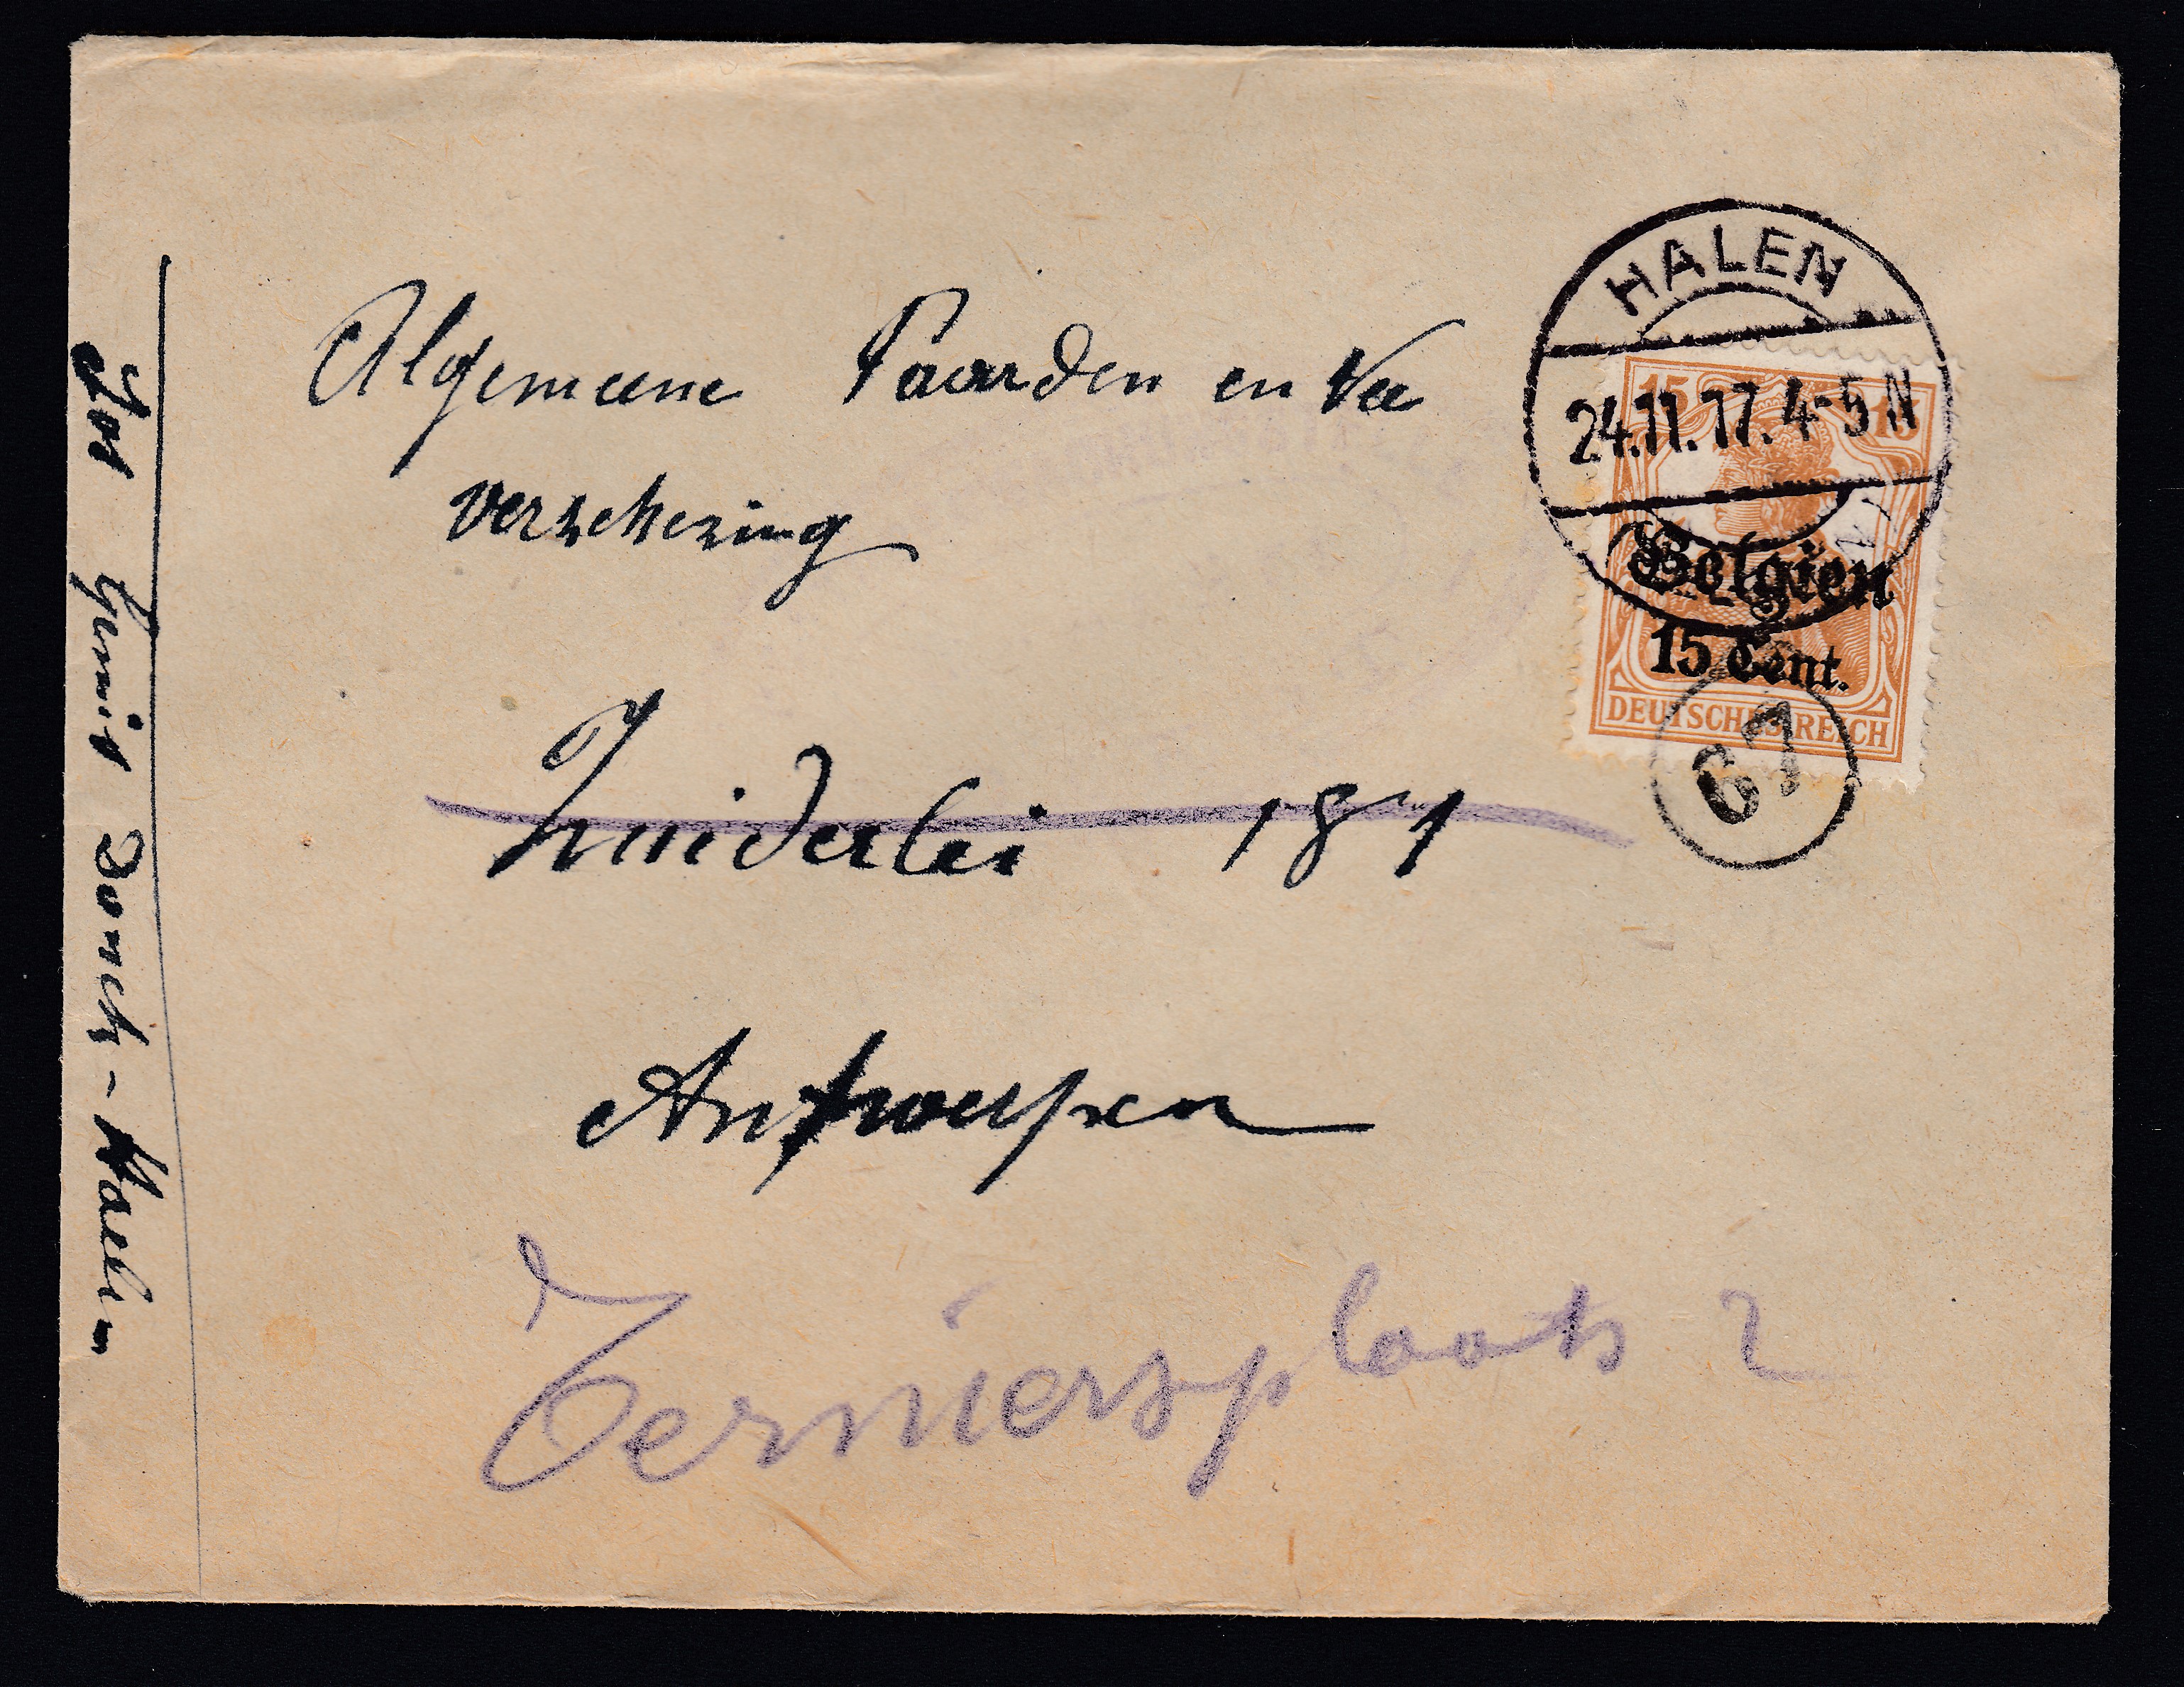 Algemeene Paarden en Vee
verzekering
Zuiderlei 181
Antwerpen
Teniersplaats 2
Jos Genis Donck - Haelen
HALEN
24.11.17.4-5 N
15 15
Belgien
15 Cent.
DEUTSCHES REICH
67